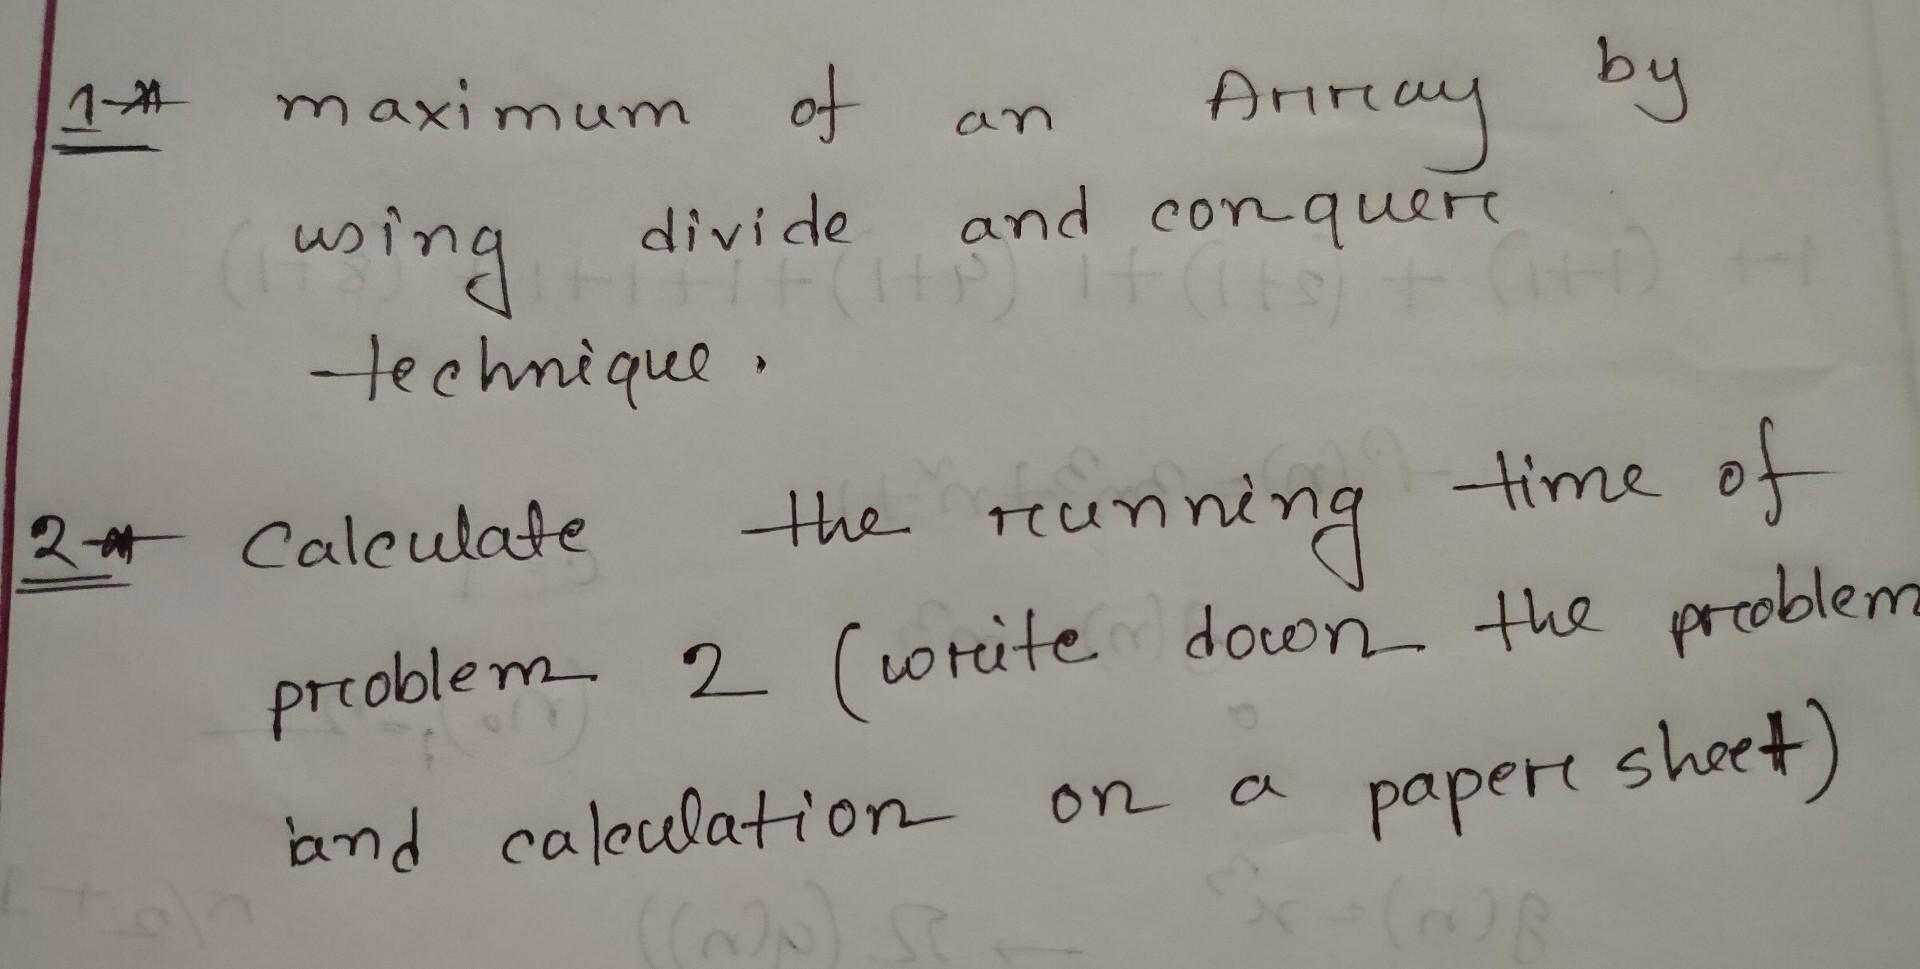 1 maximum of an Array by
using divide and conquer
technique.
2 Calculate the running time of
problem 2 (write down the problem
and calculation on a paper sheet)